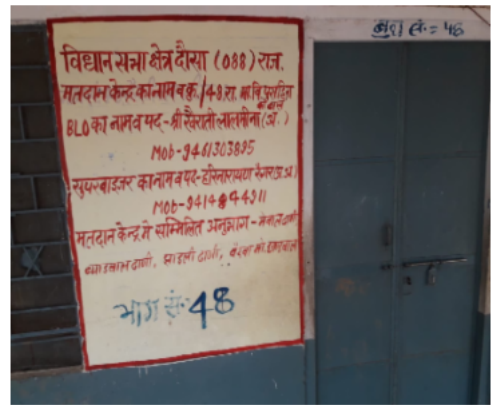 बूथ सं.= 48
विधान सभा क्षेत्र दौसा (088) राज.
मतदान केन्द्र का नाम व क्र./48 रा. मा. वि.
BLO का नाम व पद - श्री खैराती लाल मीना (अ.)
Mob-9461303895
सुपरवाइजर का नाम व पद - हरिनारायण बैरवा (व.अ.)
Mob-9414844911
मतदान केन्द्र मे सम्मिलित अनुभाग -
ढाणी, ढाणी,
भाग सं.- 48